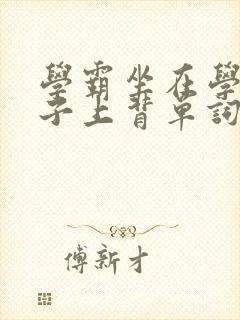 學霸坐在學
子上背單詞
傅新才